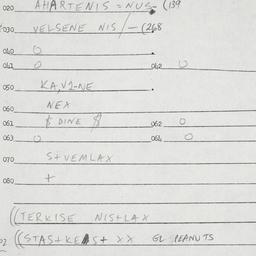 020 AHARTENIS = NUS (139
030 VELSENE NIS/-(268
040 0
041 0 042 0
050 KA,V2-NE
060 NEX
061 $ DINE $ 062 0
063 0 064 0
070 S+VEMLAX
080 +
((TERKISE NIS+LAX
((STAS+KE S+ XX GL PEANUTS